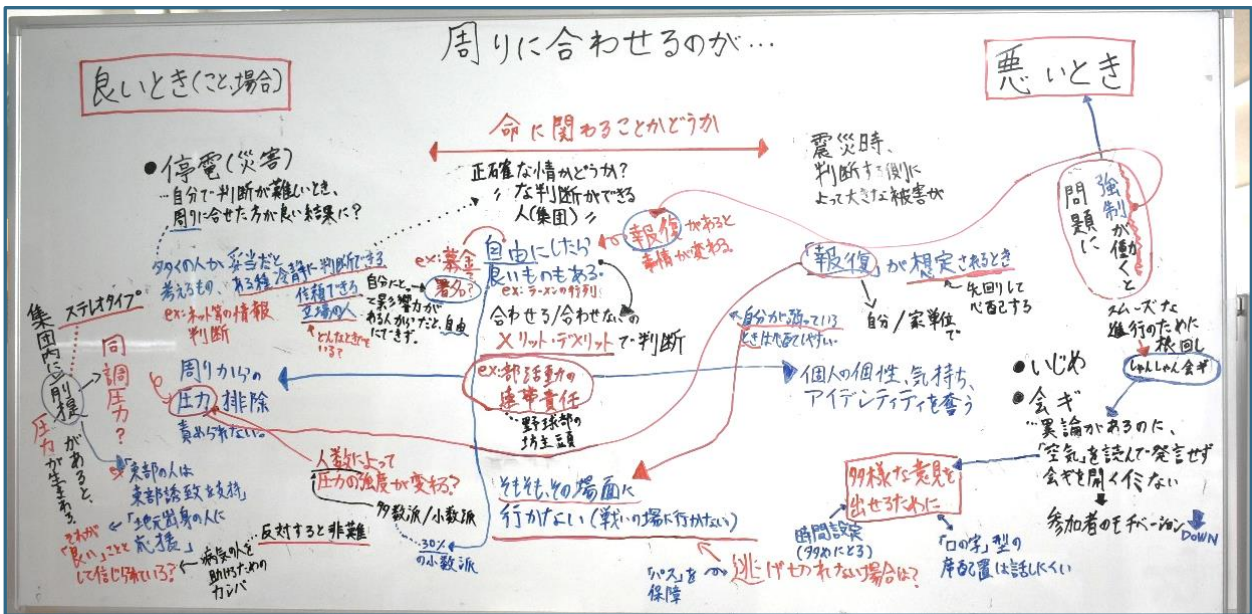 周りに合わせるのが…
良いとき(こと、場合)
悪いとき
命に関わることかどうか
●停電(災害)
…自分で判断が難しいとき、
周りに合せた方が良い結果に?
正確な情かどうか?
〃な判断ができる
人(集団)〃
震災時、
判断する側に
よって大きな被害が
強制が働くと
問題に
多くの人が妥当だと
考えるもの、
ex:ネット等の情報
判断
ある種冷静に判断できる
信頼できる
立場の人
どんなときで
いる?
ex:募金
署名?
自分にとって
異る響力が
ある人からだと、自由
にできず。
自由にしたら
良いものもある。
ex:ラーメンの行列
報復があると
事情が変わる。
合わせる/合わせないの
メリット・デメリットで判断
「報復」が想定されるとき
先回りして
心配する
自分/家単位
で
自分が張っている
スムーズな
進行のために
根回し
しゃんしゃん会ギ
ステレオタイプ
集団内に前提があると、
圧力が生まれる。
同調圧力?
周りからの
圧力排除
責められない。
ex:部活動の
連帯責任
…野球部の
坊主頭
個人の個性、気持ち、
アイデンティティを奪う
●いじめ
●会ギ
…異論があるのに、
「空気」を読んで発言せず
会ギを開くイミない
参加者のモチベーション
DOWN
「東部の人は
東部誘致を支持」
「地元出身の人に
応援」
それが
「良い」ことと
して信じられている?
病気の人を
助けるための
カンパ
反対すると非難
人数によって
圧力の強度が変わる?
多数派/小数派
30%
の小数派
そもそも、その場面に
行かない(戦いの場に行かない)
「パス」を
保障
逃げきれない場合は?
多様な意見を
出せるために
時間設定
(多めにとる)
「ロの字」型の
座配置は話しにくい